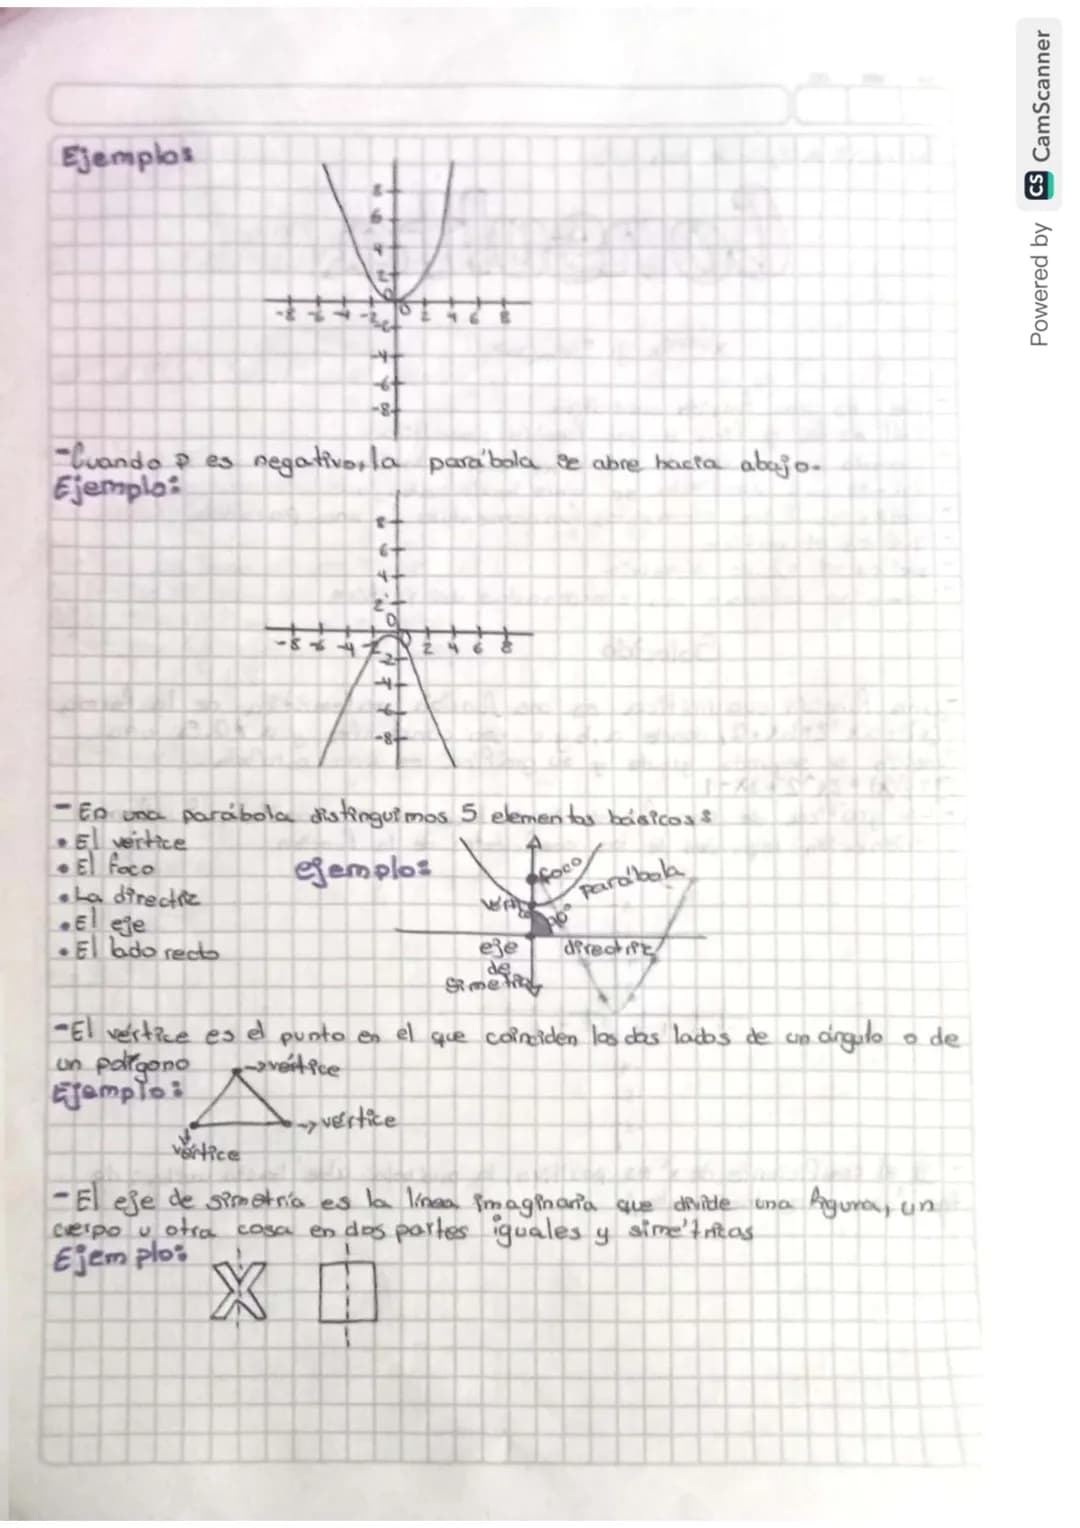 Ejemplos
8
6
4
2
0
-8 -6 -4 -2 0 2 4 6 8
-2
-4
-6
-8
-Cuando P es negativo, la parábola se abre hacia abajo.
Ejemplo:
8
6
4
2
0
-8 -6 -4 -2 0 2 4 6 8
-2
-4
-6
-8
- En una parábola distinguimos 5 elementos básicos:
• El vértice
• El foco
• La directriz
• El eje
• El lado recto
ejemplo:
foco
parábola
90°
eje de simetría
directriz
-El vértice es el punto en el que coinciden los dos lados de un ángulo o de
un polígono
Ejemplo:
→vértice
→vértice
vértice
- El eje de simetría es la línea imaginaria que divide una figura, un
cuerpo u otra cosa en dos partes iguales y simétricas
Ejemplo:
Powered by CS CamScanner